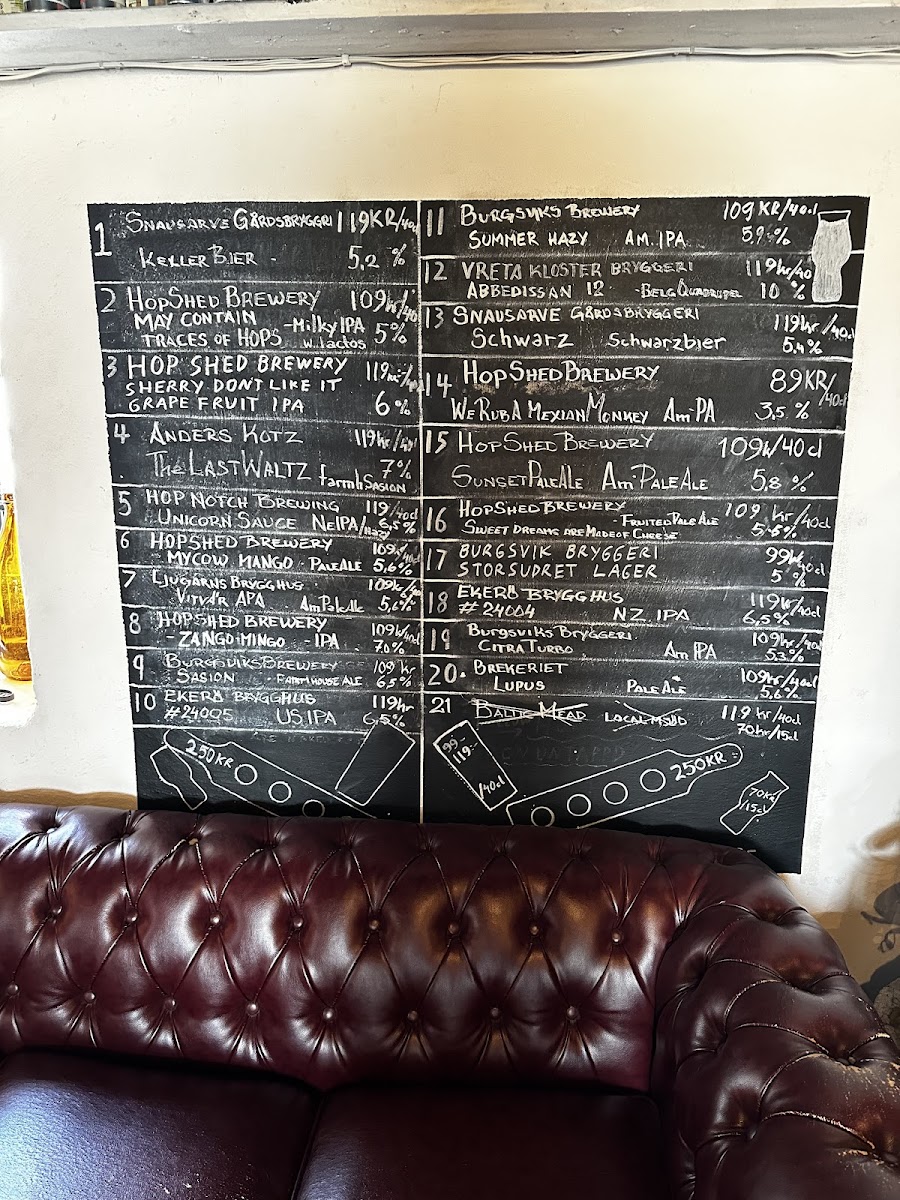 1 SNAUSARVE GÅRDSBRYGGRI 119KR/40cl
KELLER BIER - 5,2 %
2 HOPSHED BREWERY 109kr/40
MAY CONTAIN
TRACES OF HOPS - MILKY IPA w. lactos 5%
3 HOP SHED BREWERY 119kr/40
SHERRY DONT LIKE IT
GRAPE FRUIT IPA 6%
4 ANDERS KOTZ 119kr/40
THE LAST WALTZ farmh SASION 7%
5 HOP NOTCH BREWING 119/40cl
UNICORN SAUCE NEIPA/Hazy 6,5%
6 HOPSHED BREWERY 109kr/40cl
MYCOW MANGO - PALE ALE 5,6%
7 LJUGARNS BRYGGHUS 109kr/40
VITVÄR APA Am Pale Ale 5,6%
8 HOPSHED BREWERY 109kr/40cl
- ZANGO MINGO - IPA 7,0%
9 BURGSVIKS BREWERY 109 kr
SASION - FARMHOUSE ALE 6,5%
10 EKERÖ BRYGGHUB 119kr
#24005 US. IPA 6,5%
250KR
11 BURGSVIKS BREWERY 109 KR/40cl
SUMMER HAZY AM. IPA 5,9%
12 VRETA KLOSTER BRYGGERI 119kr/40
ABBEDISSAN 12 - BELG QUADRUPEL 10 %
13 SNAUSARVE GÅRDSBRYGGERI 119kr/40cl
SCHWARZ SCHWARZBIER 5,4%
14 HOPSHED BREWERY 89KR/40cl
WE RUB A MEXIAN MONKEY AM PA 3,5 %
15 HOPSHED BREWERY 109kr/40cl
SUNSET PALE ALE AM PALE ALE 5,8 %
16 HOPSHED BREWERY 109 kr/40cl
SWEET DREAMS ARE MADE OF CHEESE - FRUITED PALE ALE 5,5%
17 BURGSVIK BRYGGERI 99kr/40cl
STORSUDRET LAGER 5 %
18 EKERÖ BRYGGHUS 119kr/40cl
#24004 NZ. IPA 6,5%
19 BURGSVIKS BRYGGERI. 109kr/40cl
CITRA TURBO AM IPA 5,3%
20. BREKERIET 109kr/40cl
LUPUS PALE ALE 5,6%
21 BALTIC MEAD LOCAL MJÖD 119 kr/40cl
70kr/15cl
99:-
119:-
/40cl
250KR
70Kr
/15cl